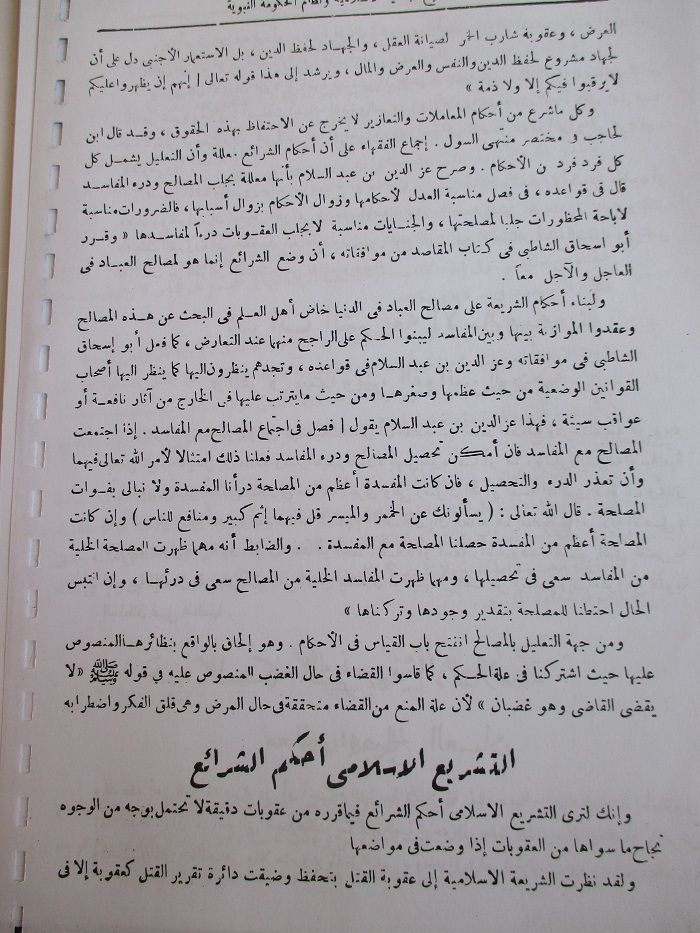 ونظام الحكومة النبوية
العرض ، وعقوبة شارب الخمر لصيانة العقل ، والجهاد لحفظ الدين ، بل الاستعمار الأجنبي دل على أن
لجهاد مشروع لحفظ الدين والنفس والعرض والمال ، ويرشد إلى هذا قوله تعالى [ إنهم إن يظهروا عليكم
لا يرقبوا فيكم إلا ولا ذمة »
وكل ماشرع من أحكام المعاملات والتعازير لا يخرج عن الاحتفاظ بهذه الحقوق ، وقد قال ابن
لحاجب و مختصر منتهى السول . إجماع الفقهاء على أن أحكام الشرائع معللة وأن التعليل يشمل كل
كل فرد فرد ن الأحكام . وصرح عز الدين بن عبد السلام بأنها معللة بجلب المصالح ودرء المفاسد
قال فى قواعده ، فى فصل مناسبة العدل لأحكامها وزوال الأحكام بزوال أسبابها ، فالضرورات مناسبة
لاباحة المحظورات جلبا لمصلحتها ، والجنايات مناسبة لايجلب العقوبات درءاً لمفاسدها « وقرر
أبو اسحاق الشاطبى فى كتاب المقاصد من موافقاته ، أن وضع الشرائع إنما هو لمصالح العباد فى
العاجل والآجل معاً .
ولبناء أحكام الشريعة على مصالح العباد فى الدنيا خاض أهل العلم فى البحث عن هذه المصالح
وعقدوا الموازنة بينها وبين المفاسد ليبنوا الحكم على الراجح منهما عند التعارض ، كما فعل أبو إسحاق
الشاطبى فى موافقاته وعز الدين بن عبد السلام فى قواعده ، وتجدهم ينظرون اليها كما ينظر اليها أصحاب
القوانين الوضعية من حيث عظمها وصغرها ومن حيث مايترتب عليها فى الخارج من آثار نافعة أو
عواقب سيئة ، فهذا عز الدين بن عبد السلام يقول [ فصل فى اجتماع المصالح مع المفاسد . إذا اجتمعت
المصالح مع المفاسد فان أمكن تحصيل المصالح ودرء المفاسد فعلنا ذلك امتثالا لأمر الله تعالى فيهما
وأن تعذر الدرء والتحصيل ، فان كانت المفسدة أعظم من المصلحة درأنا المفسدة ولا نبالى بفوات
المصلحة . قال الله تعالى : ( يسألونك عن الخمر والميسر قل فيهما إثم كبير ومنافع للناس ) وإن كانت
المصلحة أعظم من المفسدة حصلنا المصلحة مع المفسدة . . والضابط أنه مهما ظهرت المصلحة الخلية
من المفاسد سعى فى تحصيلها ، ومهما ظهرت المفاسد الخلية من المصالح سعى فى درئها ، وإن التبس
الحال احتطنا للمصلحة بتقدير وجودها وتركناها »
ومن جهة التعليل بالمصالح انفتح باب القياس فى الأحكام . وهو إلحاق بالواقع بنظائرها المنصوص
عليها حيث اشتركنا فى علة الحكم ، كما قاسوا القضاء فى حال الغضب المنصوص عليه في قوله ﷺ « لا
يقضى القاضى وهو غضبان » لأن علة المنع من القضاء متحققة فى حال المرض وهى قلق الفكر واضطرابه
التشريع الاسلامى أحكم الشرائع
وإنك لترى التشريع الاسلامى أحكم الشرائع فيما قرره من عقوبات دقيقة لا تحتمل بوجه من الوجوه
نجاح ما سواها من العقوبات إذا وضعت فى مواضعها
ولقد نظرت الشريعة الاسلامية إلى عقوبة القتل بتحفظ وضيقت دائرة تقرير القتل كعقوبة إلا فى